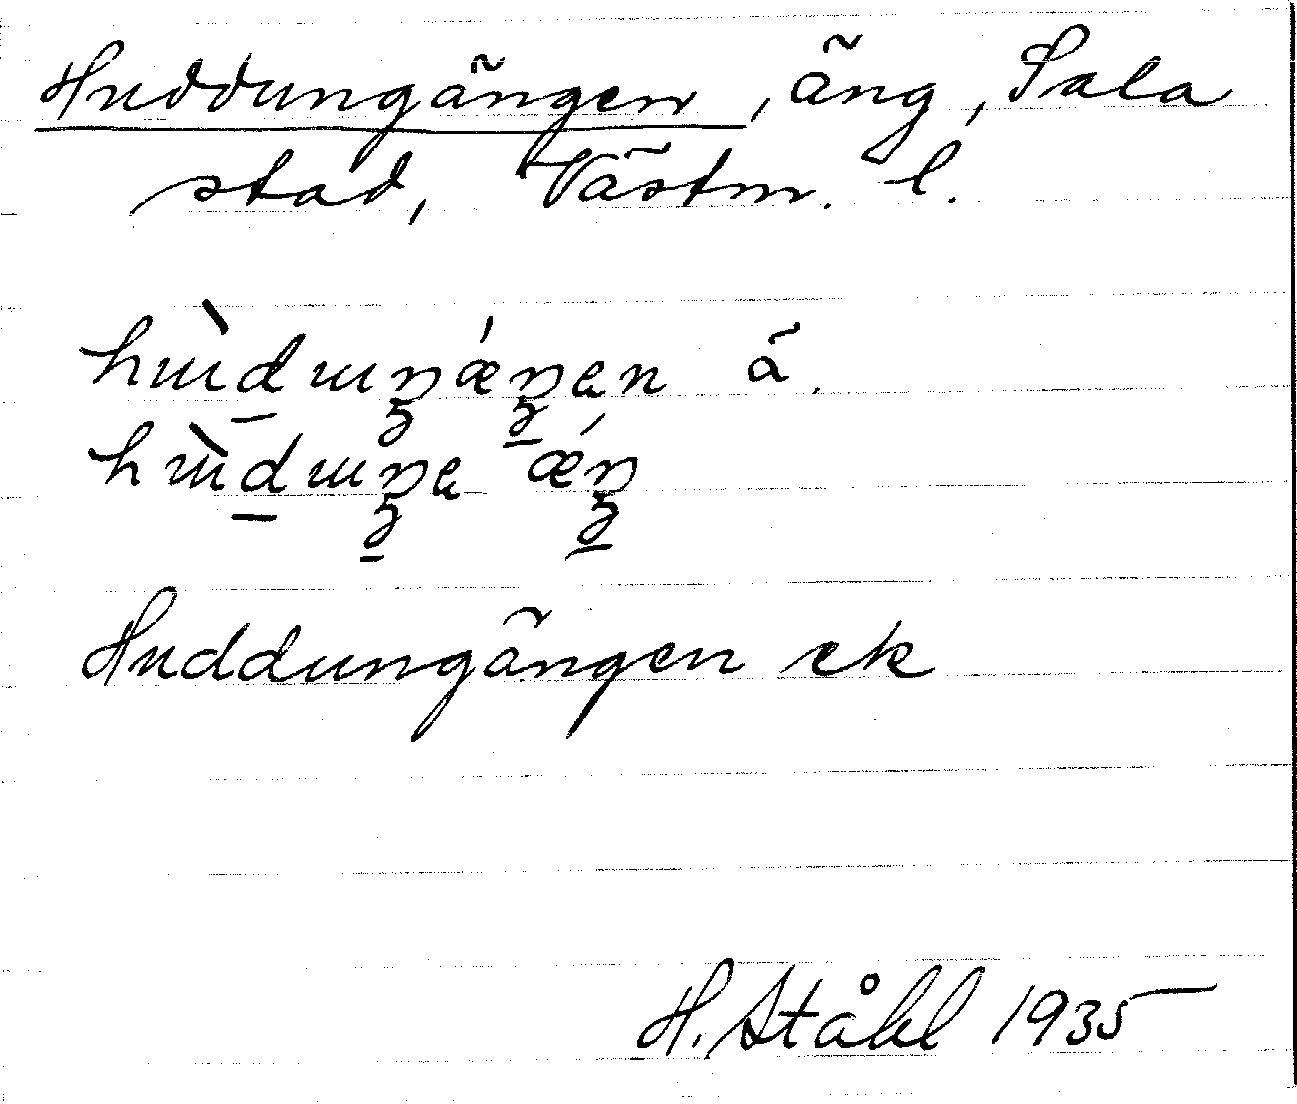 Huddungängen, äng, Sala
stad, Västm. l.
hɯ̀d̲ɯŋǽŋ̲ɐn ä.
hɯ̀d̲ɯŋ̲ɐ ǽŋ̲
Huddungängen ek
H. Ståhl 1935